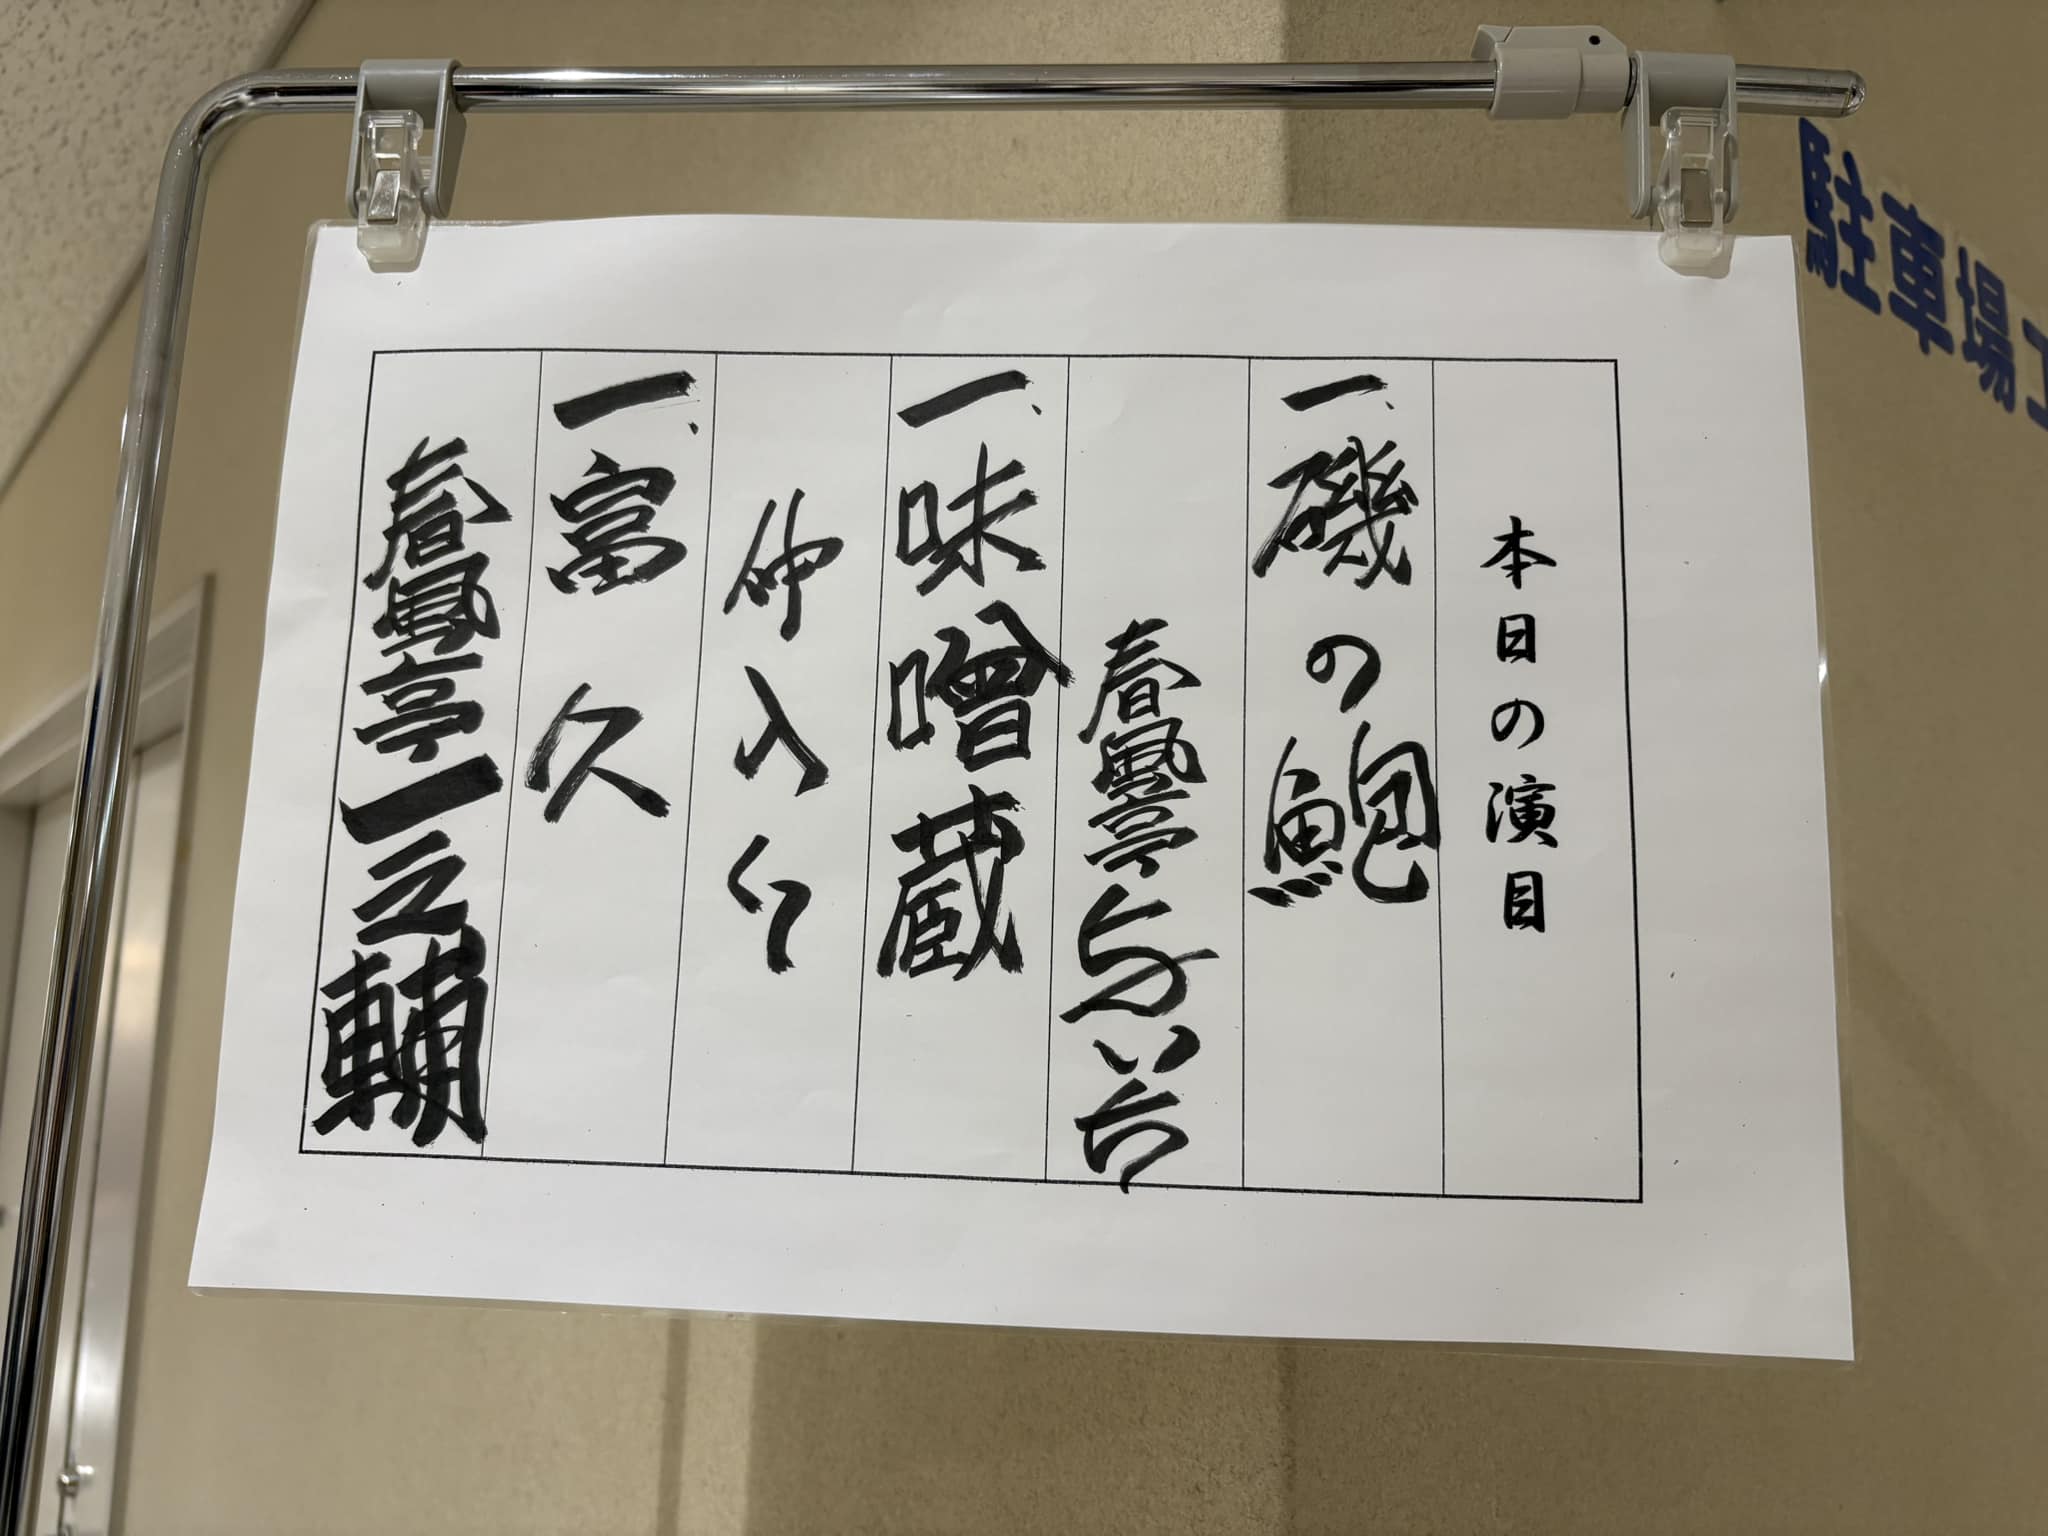 本日の演目
一、磯の鮑
春風亭与いち
一、味噌蔵
仲入り
一、富久
春風亭一之輔
駐車場